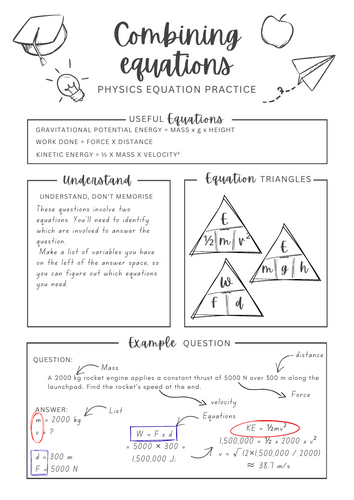 Combining
equations
PHYSICS EQUATION PRACTICE
USEFUL Equations
GRAVITATIONAL POTENTIAL ENERGY = MASS x g x HEIGHT
WORK DONE = FORCE X DISTANCE
KINETIC ENERGY = ½ X MASS X VELOCITY²
Understand
UNDERSTAND, DON'T MEMORISE
These questions involve two
equations. You'll need to identify
which are involved to answer the
question.
Make a list of variables you have
on the left of the answer space, so
you can figure out which equations
you need.
Equation TRIANGLES
E
½ m v²
E
m g h
W
F d
Example QUESTION
QUESTION:
Mass
distance
A 2000 kg rocket engine applies a constant thrust of 5000 N over 300 m along the
launchpad. Find the rocket's speed at the end.
velocity
Force
ANSWER:
List
Equations
m = 2000 kg
v = ?
d = 300 m
F = 5000 N
W = F x d
= 5000 × 300 =
1,500,000 J.
KE = ½mv²
1,500,000 = ½ x 2000 x v²
v = √(2×1,500,000 / 2000)
≈ 38.7 m/s